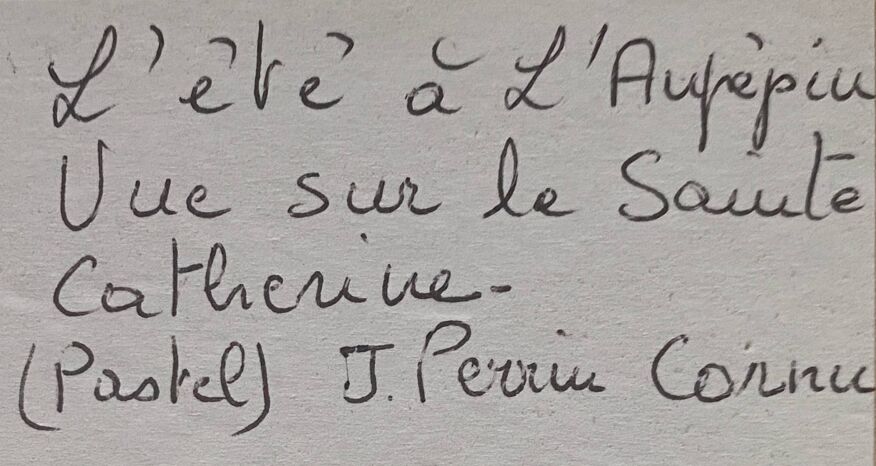 L'été à L'Aupépin
Vue sur le Sainte
Catherine-
(Pastel) J. Perrin Cornu